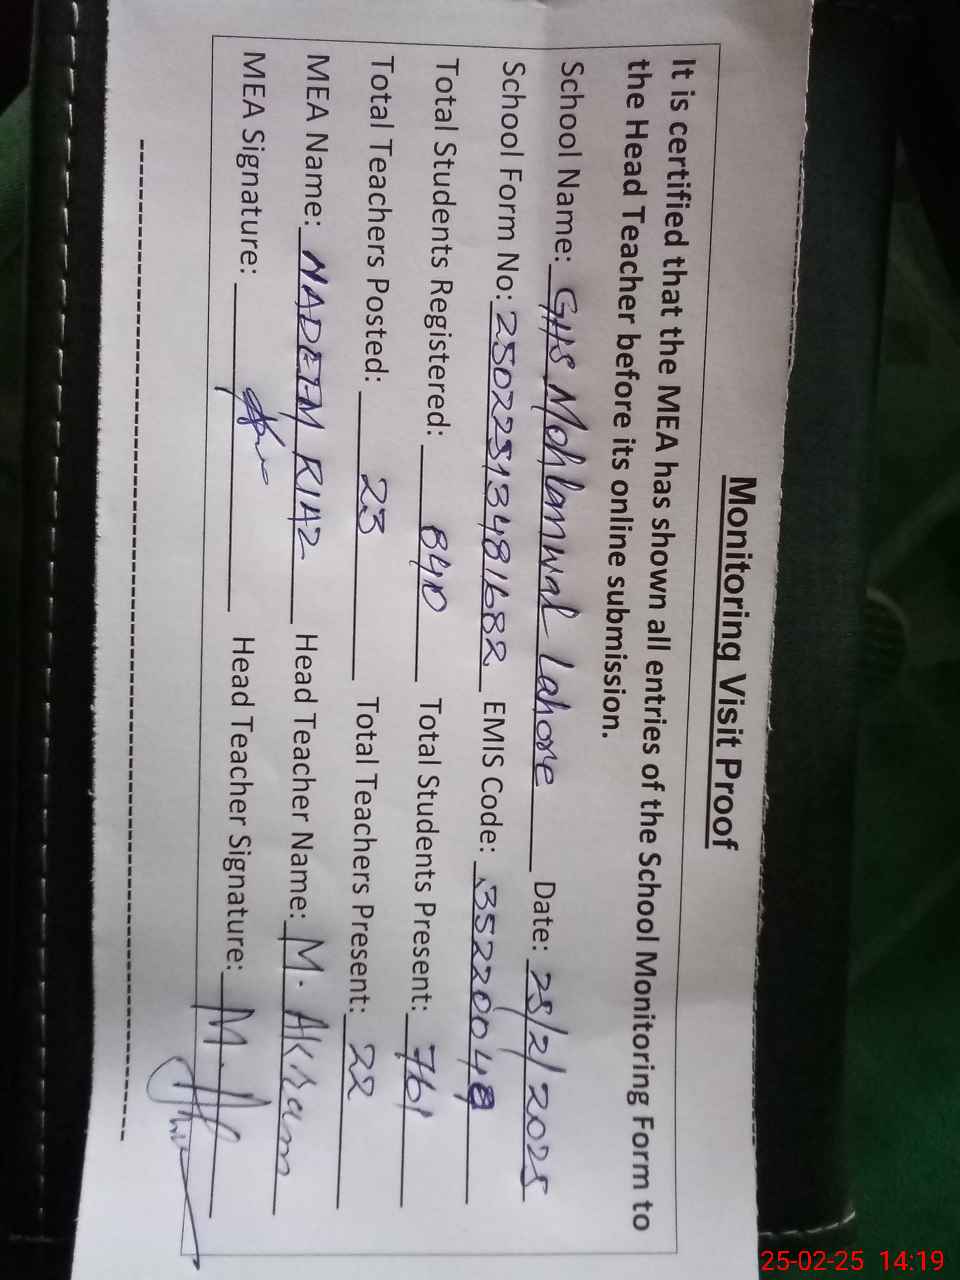 Monitoring Visit Proof
It is certified that the MEA has shown all entries of the School Monitoring Form to
the Head Teacher before its online submission.
School Name: GHS Mohlanwal Lahore Date: 25/2/2025
School Form No: 25022513481682 EMIS Code: 35220048
Total Students Registered: 840 Total Students Present: 761
Total Teachers Posted: 23 Total Teachers Present: 22
MEA Name: NADEEM RIAZ Head Teacher Name: M. AKram
MEA Signature: Head Teacher Signature: M.
25-02-25 14:19